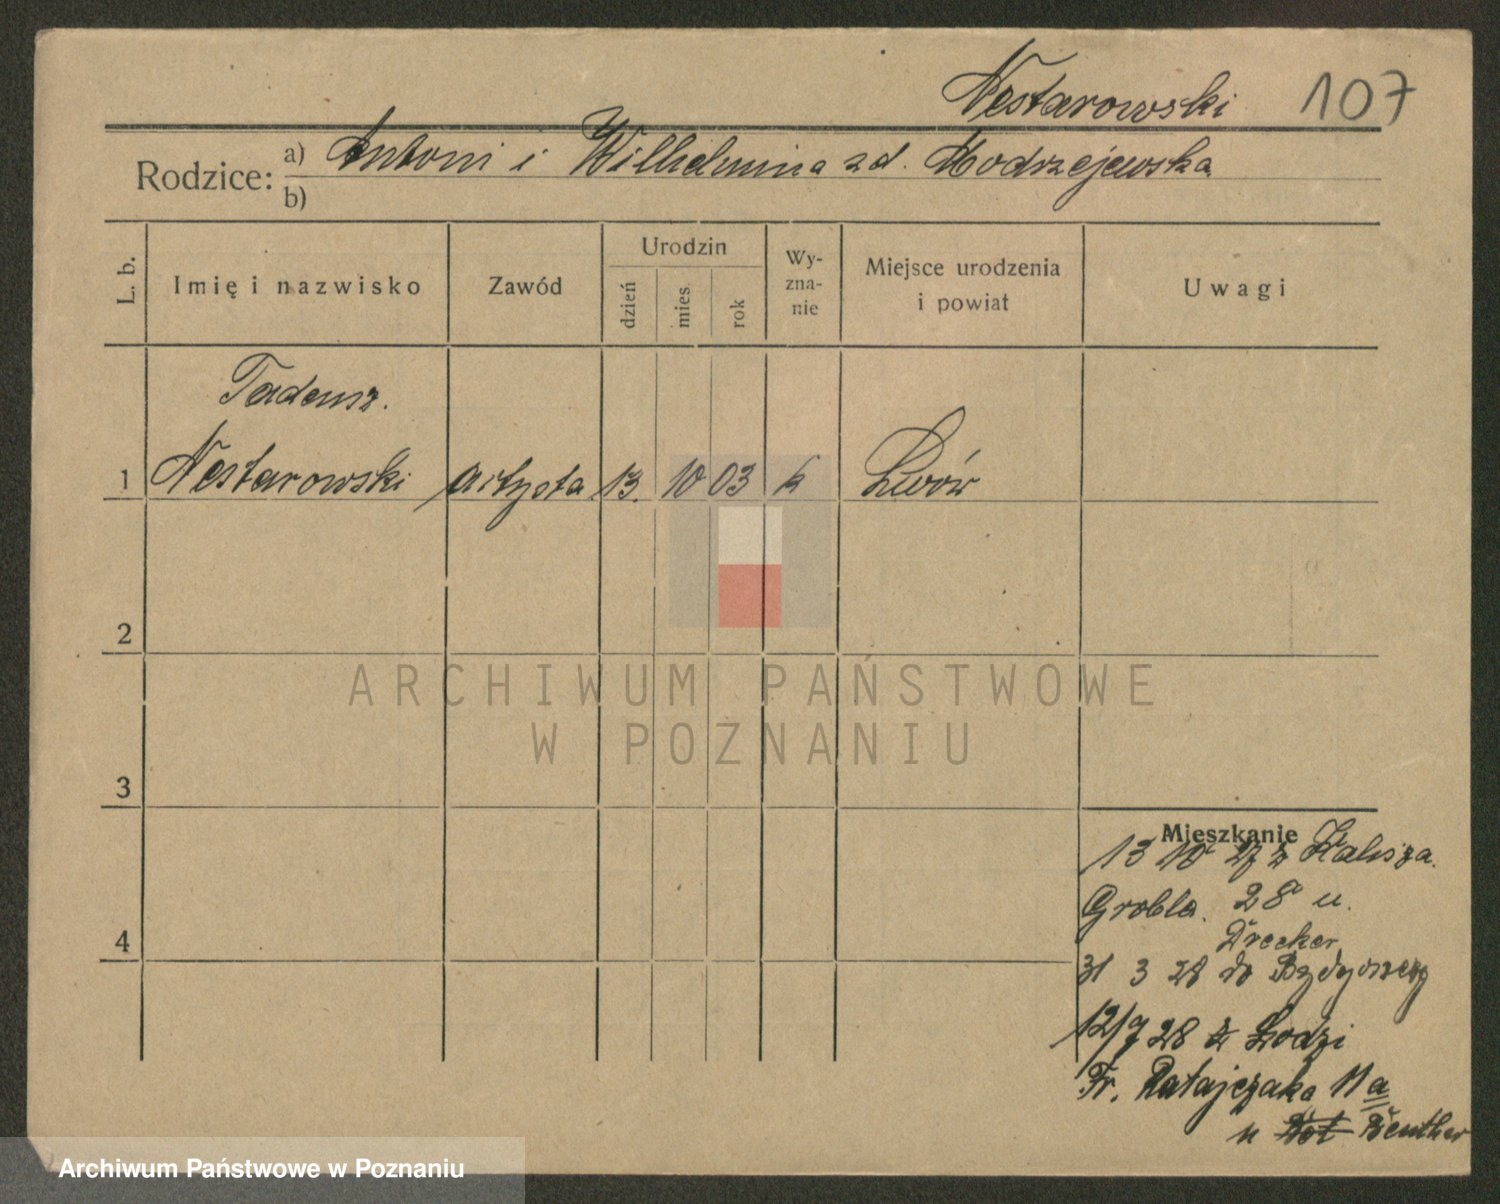 Nestarowski 107
Rodzice: a) Antoni i Wilhelmina zd. Modrzejewska
b)
L. b. Imię i nazwisko Zawód Urodzin dzień mies rok Wy-zna-nie Miejsce urodzenia i powiat Uwagi
Tadeusz.
1 Nestarowski artysta 13. 10 03 k Lwów
2
ARCHIWUM PAŃSTWOWE
W POZNANIU
3
Mieszkanie
13 10 27 z Kalisza.
Grobla. 28 u.
Drecker
4
31 3 28 do Bydgoszczy
12/7 28 z Łodzi
Fr. Ratajczaka 11a
u Beuther
Archiwum Państwowe w Poznaniu